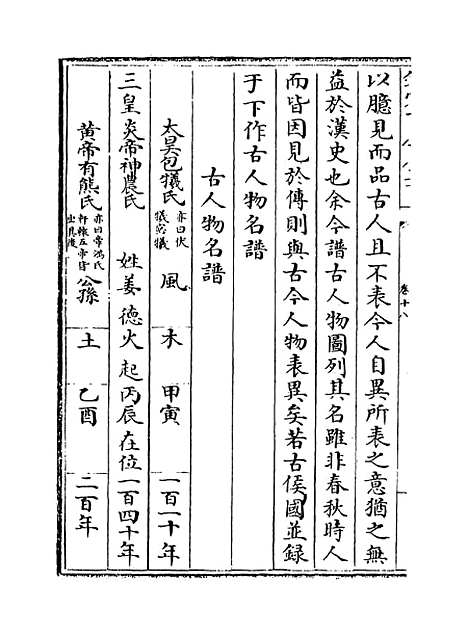 以臆見而品古人且不表今人自異所表之意猶之無
益於漢史也余今譜古人物圖列其名雖非春秋時人
而皆因見於傳則與古今人物表異矣若古侯國並録
于下作古人物名譜
古人物名譜
太昊包犧氏 亦曰伏犧宓犧 風 木 甲寅 一百一十年
三皇 炎帝神農氏 姓姜 德火 起丙辰 在位一百四十年
黄帝有熊氏 亦曰帝鴻氏軒轅五帝皆出其後 公孫 土 乙酉 二百年
卷十八